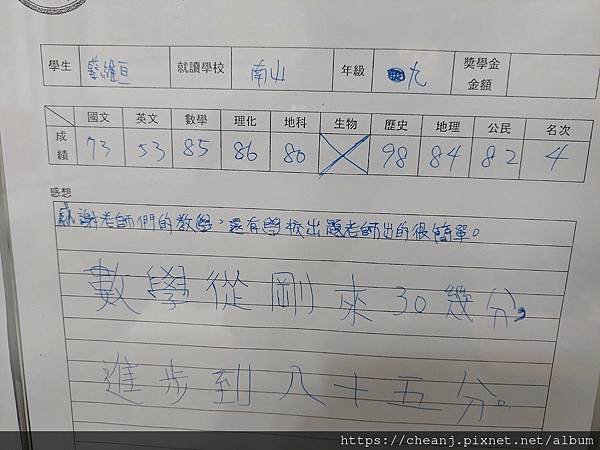 學生 蔡繼亘 就讀學校 南山 年級 九 獎學金金額
國文 英文 數學 理化 地科 生物 歷史 地理 公民 名次
成績 73 53 85 86 80 98 84 82 4
感想
感謝老師們的教學，還有學校出題老師出的很簡單。
數學從剛來30幾分，
進步到八十五分。
https://cheanj.pixnet.net/album